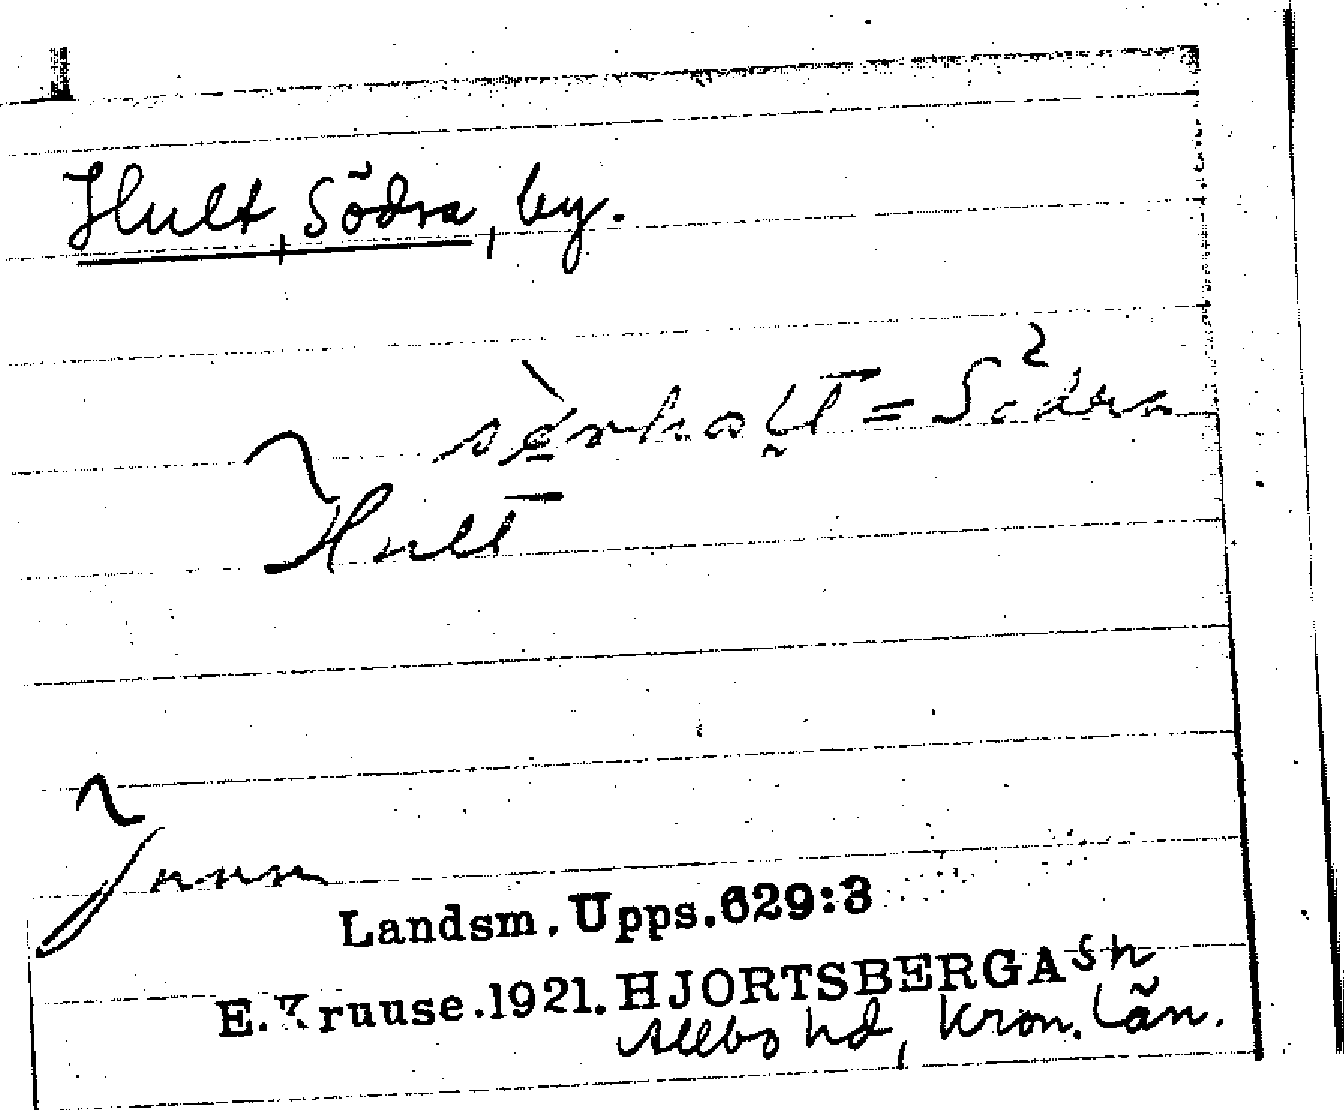 Hult, Södra, by.
= Södra
Hult
Landsm. Upps. 629:3
E. Kruuse. 1921. HJORTSBERGA sn,
Allbo hd, Kron. län.